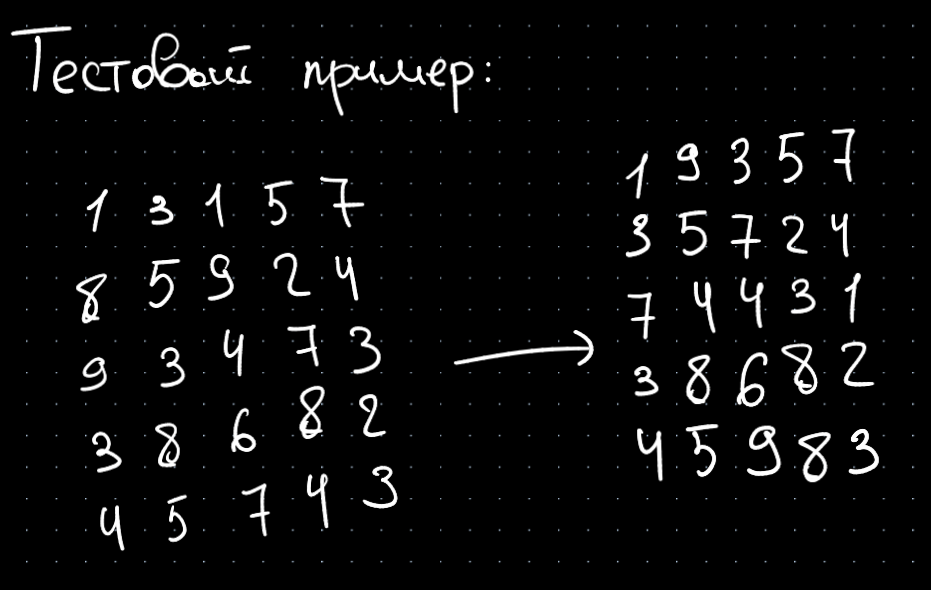 Тестовый пример:
1 3 1 5 7
8 5 9 2 4
9 3 4 7 3
3 8 6 8 2
4 5 7 4 3
1 9 3 5 7
3 5 7 2 4
7 4 4 3 1
3 8 6 8 2
4 5 9 8 3